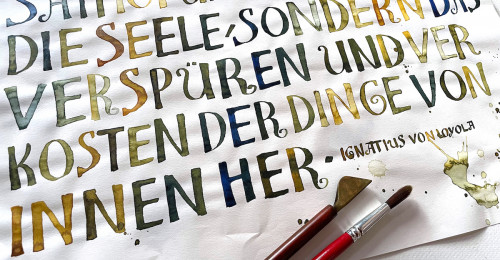 DIE SEELE, SONDERN DAS
VERSPÜREN UND VER
KOSTEN DER DINGE VON
INNEN HER.
IGNATIUS VON LOYOLA